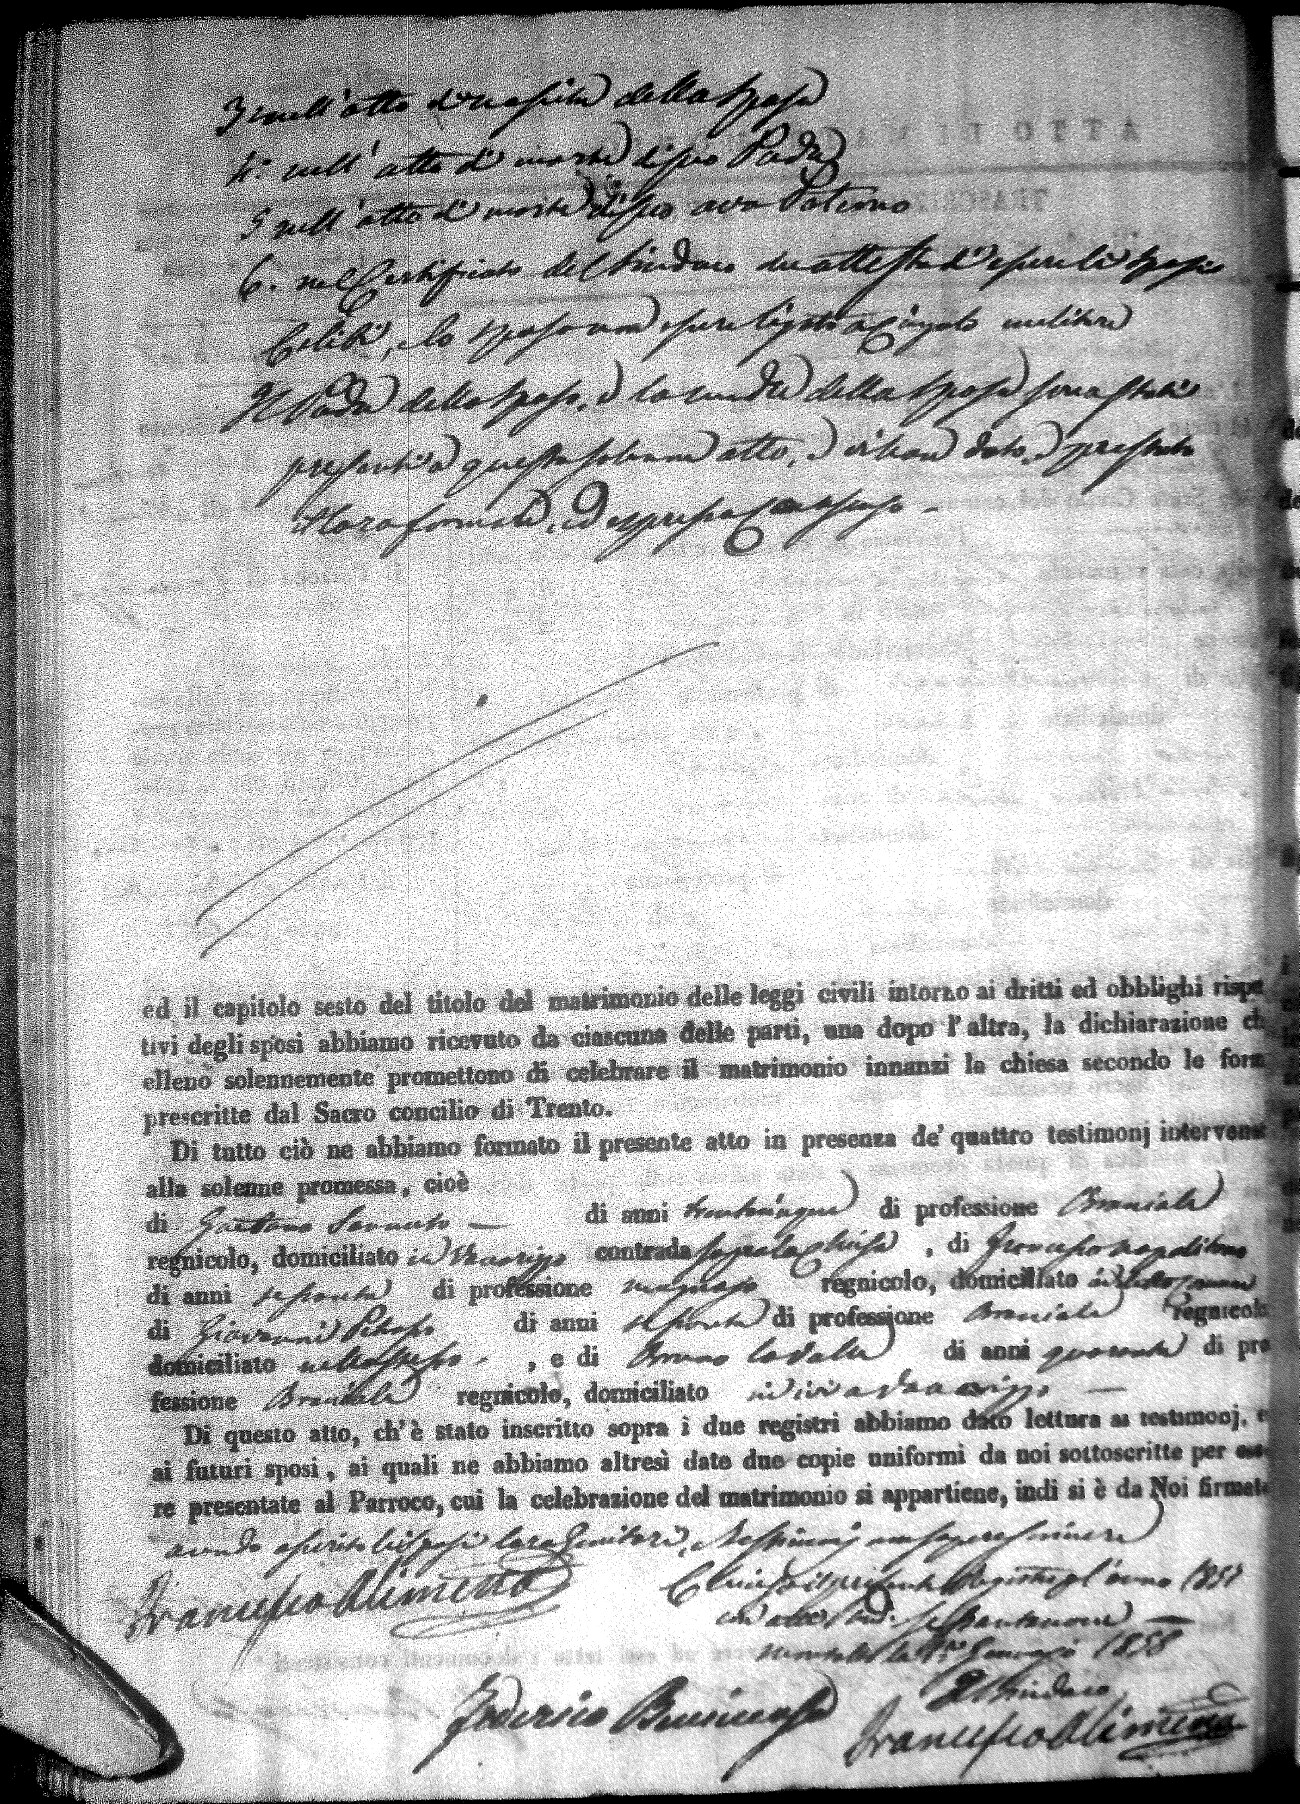 3 nell'atto di nascita della sposa
4: nell'atto di morte di suo Padre
5 nell'atto di morte di suo avo Paterno
6. nel Certificato del Sindaco che attesta d'essere li sposi
celibi, e lo sposo non essere ligato a Cingolo militare
Il Padre dello sposo, e la madre della sposa sono stati
presenti a questo solenne atto, e vi han dato, e prestato
il loro formale, ed espresso Consenso -
ed il capitolo sesto del titolo del matrimonio delle leggi civili intorno ai dritti ed obblighi rispe
tivi degli sposi abbiamo ricevuto da ciascuna delle parti, una dopo l'altra, la dichiarazione ch
elleno solennemente promettono di celebrare il matrimonio innanzi la chiesa secondo le form
prescritte dal Sacro concilio di Trento.
Di tutto ciò ne abbiamo formato il presente atto in presenza de' quattro testimonj intervenu
alla solenne promessa, cioè
di Gaetano — di anni trentacinque di professione Bracciale
regnicolo, domiciliato in contrada sopra la Chiesa, di Francesco Napolitano
di anni sessanta di professione regnicolo, domiciliato in
di Giovanni di anni di professione Bracciale regnicolo
domiciliato nello stesso -, e di Bruno di anni quaranta di pro
fessione Bracciale regnicolo, domiciliato in —
Di questo atto, ch'è stato inscritto sopra i due registri abbiamo dato lettura ai testimonj, e
ai futuri sposi, ai quali ne abbiamo altresì date due copie uniformi da noi sottoscritte per esse
re presentate al Parroco, cui la celebrazione del matrimonio si appartiene, indi si è da Noi firmato
avendo asserito li sposi loro Genitori, e testimonj non saper scrivere
Francesco Alimena
Chiuso il presente Registro per l'anno 1857
—
Gennajo 1858
Il Sindaco
Federico
Francesco Alimena